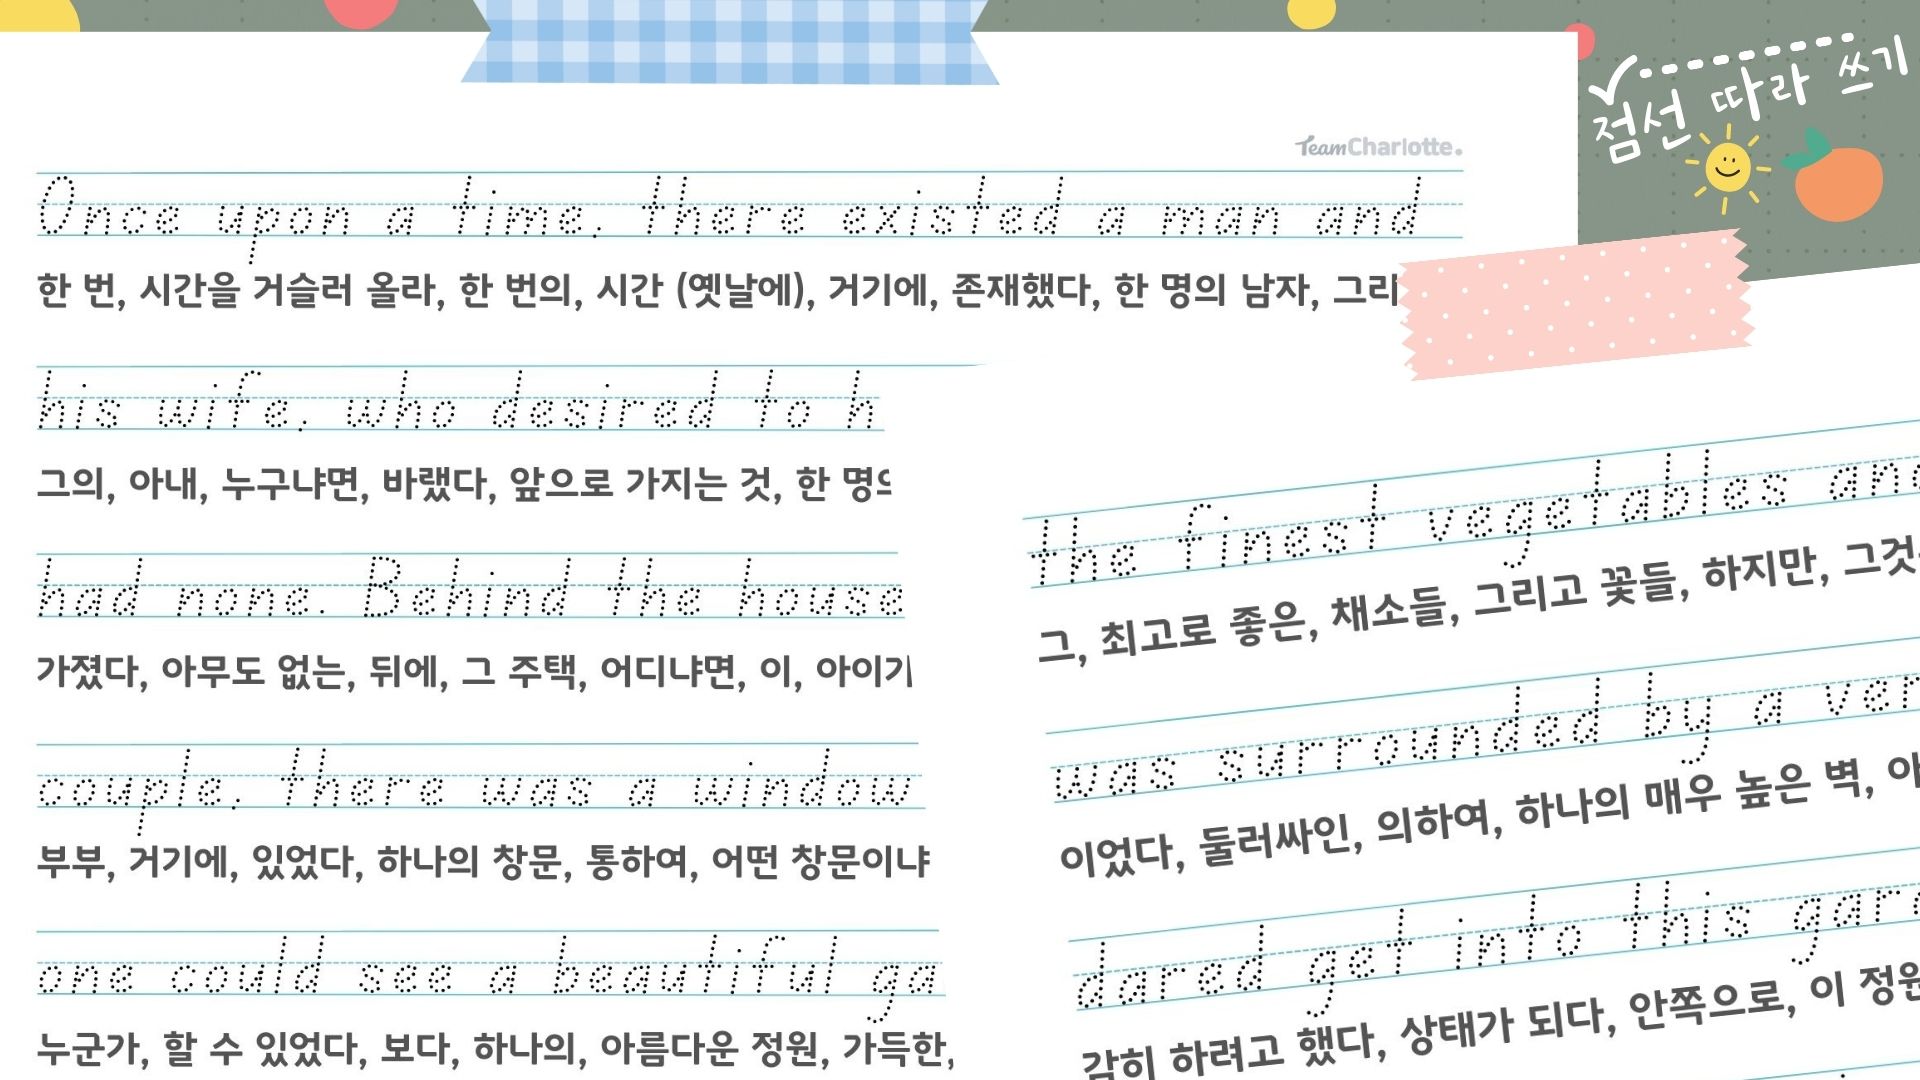 점선 따라 쓰기
TeamCharlotte.
Once upon a time, there existed a man and
한 번, 시간을 거슬러 올라, 한 번의, 시간 (옛날에), 거기에, 존재했다, 한 명의 남자,
his wife, who desired to h
그의, 아내, 누구냐면, 바랬다, 앞으로 가지는 것, 한
had none. Behind the house
가졌다, 아무도 없는, 뒤에, 그 주택, 어디냐면, 이,
couple, there was a window
부부, 거기에, 있었다, 하나의 창문, 통하여, 어떤 창문이냐
one could see a beautiful ga
누군가, 할 수 있었다, 보다, 하나의, 아름다운 정원, 가득한,
the finest vegetables
그, 최고로 좋은, 채소들, 그리고 꽃들, 하지만,
was surrounded by a
이었다, 둘러싸인, 의하여, 하나의 매우 높은 벽,
dared get into this
감히 하려고 했다, 상태가 되다, 안쪽으로, 이